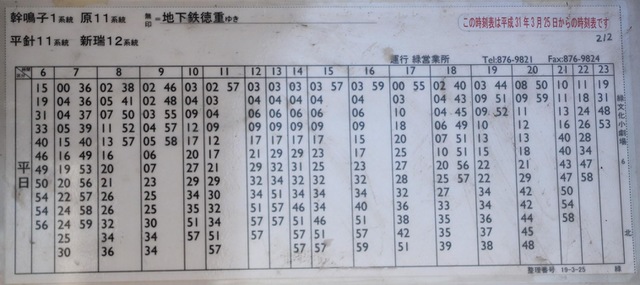 幹鳴子1系統 原11系統 無印=地下鉄徳重ゆき この時刻表は平成31年3月25日からの時刻表です
平針11系統 新瑞12系統 212
運行 緑営業所 Tel:876-9821 Fax:876-9824
6 7 8 9 10 11 12 13 14 15 16 17 18 19 20 21 22 23
平日
15 00 36 02 38 02 46 03 02 57 03 03 03 03 57 03 59 00 55 02 40 03 44 08 50 10 11 19
19 04 36 05 41 02 48 03 04 04 04 04 04 04 04 04 43 09 51 09 59 11 18 31
31 04 37 07 50 03 55 09 04 04 04 04 04 04 10 04 45 09 52 11 13 24 48
33 05 39 11 52 04 57 12 09 09 09 09 09 09 18 06 49 10 12 16 26 53
40 15 40 13 57 05 58 17 12 17 17 12 17 17 20 07 51 13 13 40 28
46 16 49 16 06 20 17 21 29 29 23 17 25 10 51 15 18 40 34
49 19 53 20 07 27 21 29 32 31 25 23 27 20 56 22 21 43 47
50 20 56 21 23 29 29 32 34 32 32 27 34 25 57 22 29 47 58
54 22 57 26 25 34 30 34 51 34 34 34 32 27 34 42 50
54 24 58 26 25 35 32 51 57 46 34 40 34 32 34 42 54
56 24 59 32 30 51 34 57 57 51 46 51 38 35 34 44 58
25 34 34 57 51 57 51 57 42 35 37 45
30 36 34 57 57 57 59 51 39 38 48
緑文化小劇場 6 北
整理番号 19-3-25 緑